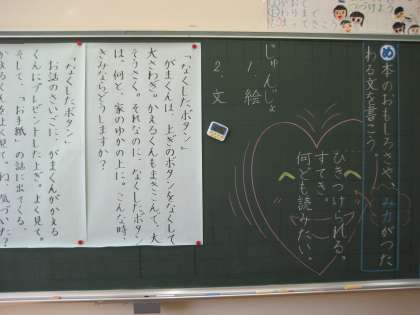 め本のおもしろさや、み力がつた
わる文を書こう。
ひきつけられる。
すてき。
何ども読みた〜。
じゅんじょ
1. 絵
2. 文
「なくしたボタン」
がまくんは、上ぎのボタンをなくして
大さわぎ。かえるくんもまきこんで、大
そうさく。それなのに、なくしたボタン
は、何と、家のゆかの上に。こんな時、
きみならどうしますか？
「なくしたボタン」
お話のさいごに、がまくんがかえる
くんにプレゼントした上ぎ。よく見て。
そして、「お手紙」の話に出てくる、
かえるくんをよく見て。ね、気づいた？